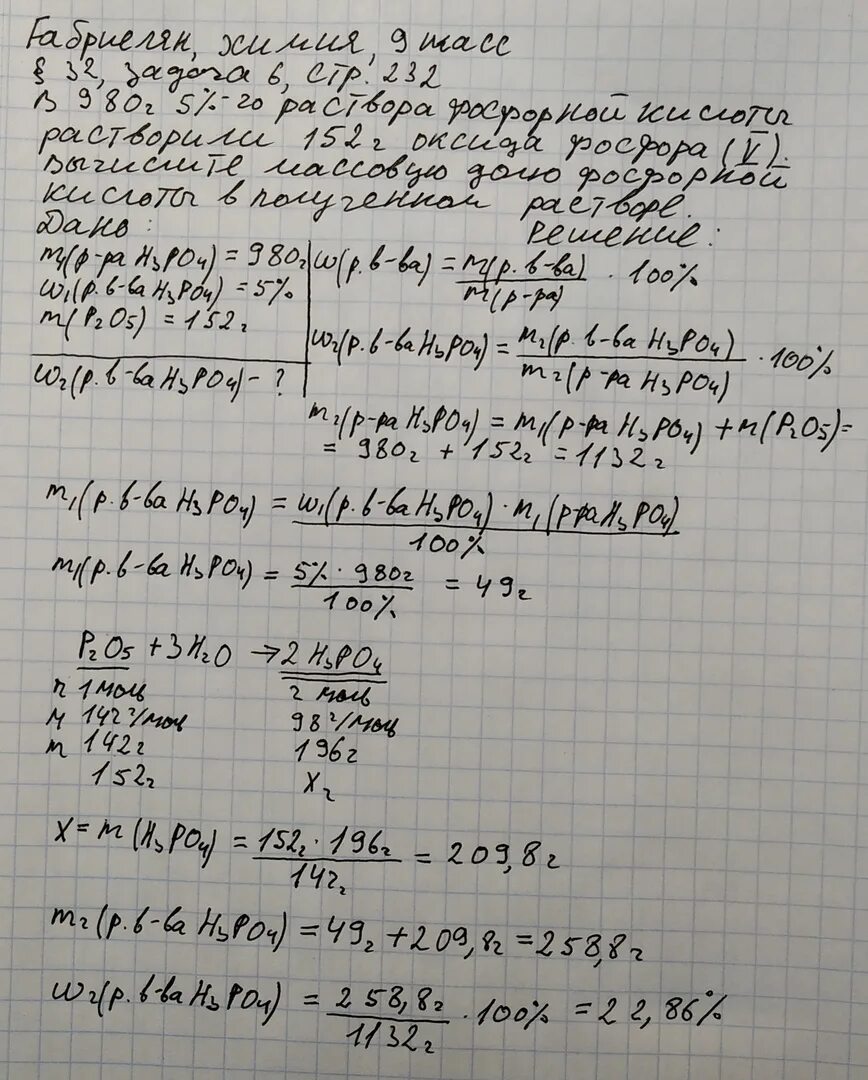 Габриелян, химия, 9 класс
§ 32, задача 6, стр. 232
В 980г 5%-го раствора фосфорной кислоты
растворили 152г оксида фосфора (V).
Вычислите массовую долю фосфорной
кислоты в полученном растворе.
Дано:
m₁(р-ра H₃PO₄) = 980г
ω₁(р.в-ва H₃PO₄) = 5%
m(P₂O₅) = 152г
ω₂(р.в-ва H₃PO₄) - ?
Решение:
ω(р.в-ва) = m(р.в-ва) / m(р-ра) · 100%
ω₂(р.в-ва H₃PO₄) = m₂(р.в-ва H₃PO₄) / m₂(р-ра H₃PO₄) · 100%
m₂(р-ра H₃PO₄) = m₁(р-ра H₃PO₄) + m(P₂O₅) =
= 980г + 152г = 1132г
m₁(р.в-ва H₃PO₄) = ω₁(р.в-ва H₃PO₄) · m₁(р-ра H₃PO₄) / 100%
m₁(р.в-ва H₃PO₄) = 5% · 980г / 100% = 49г
P₂O₅ + 3H₂O → 2H₃PO₄
n 1моль 2 моль
M 142г/моль 98г/моль
m 142г 196г
152г Xг
X = m(H₃PO₄) = 152г · 196г / 142г = 209,8г
m₂(р.в-ва H₃PO₄) = 49г + 209,8г = 258,8г
ω₂(р.в-ва H₃PO₄) = 258,8г / 1132г · 100% = 22,86%